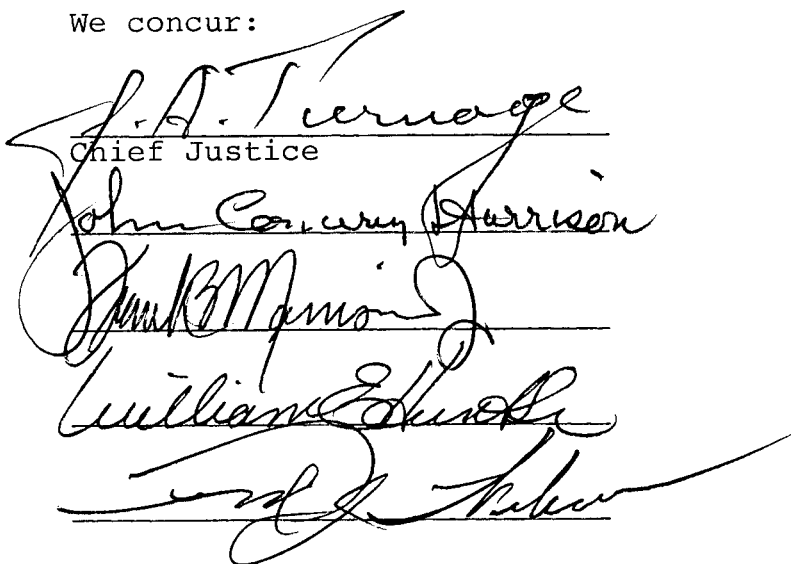 We concur:
J. A. Turnage
Chief Justice
John Conway Harrison
Frank B. Morrison Jr.
William E. Hunt Sr.